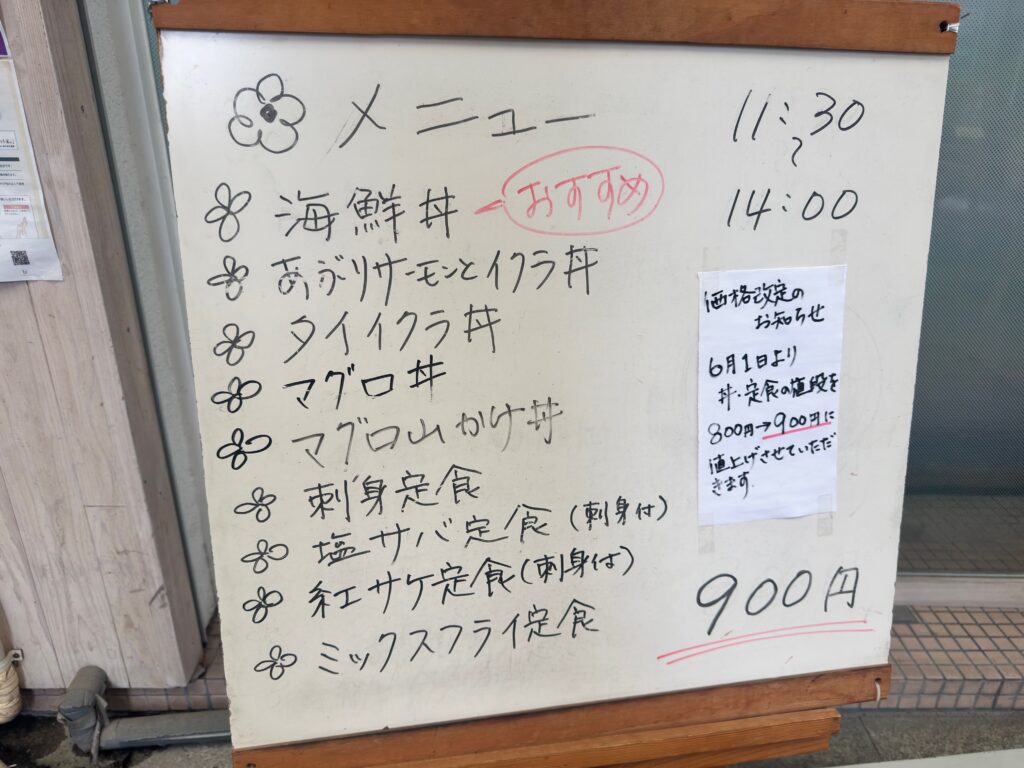 メニュー
11:30
〜
14:00
海鮮丼
おすすめ
あぶりサーモンとイクラ丼
タイイクラ丼
マグロ丼
マグロ山かけ丼
刺身定食
塩サバ定食(刺身付)
紅サケ定食(刺身付)
ミックスフライ定食
価格改定の
お知らせ
6月1日より
丼・定食の値段を
800円→900円に
値上げさせていただ
きます.
900円